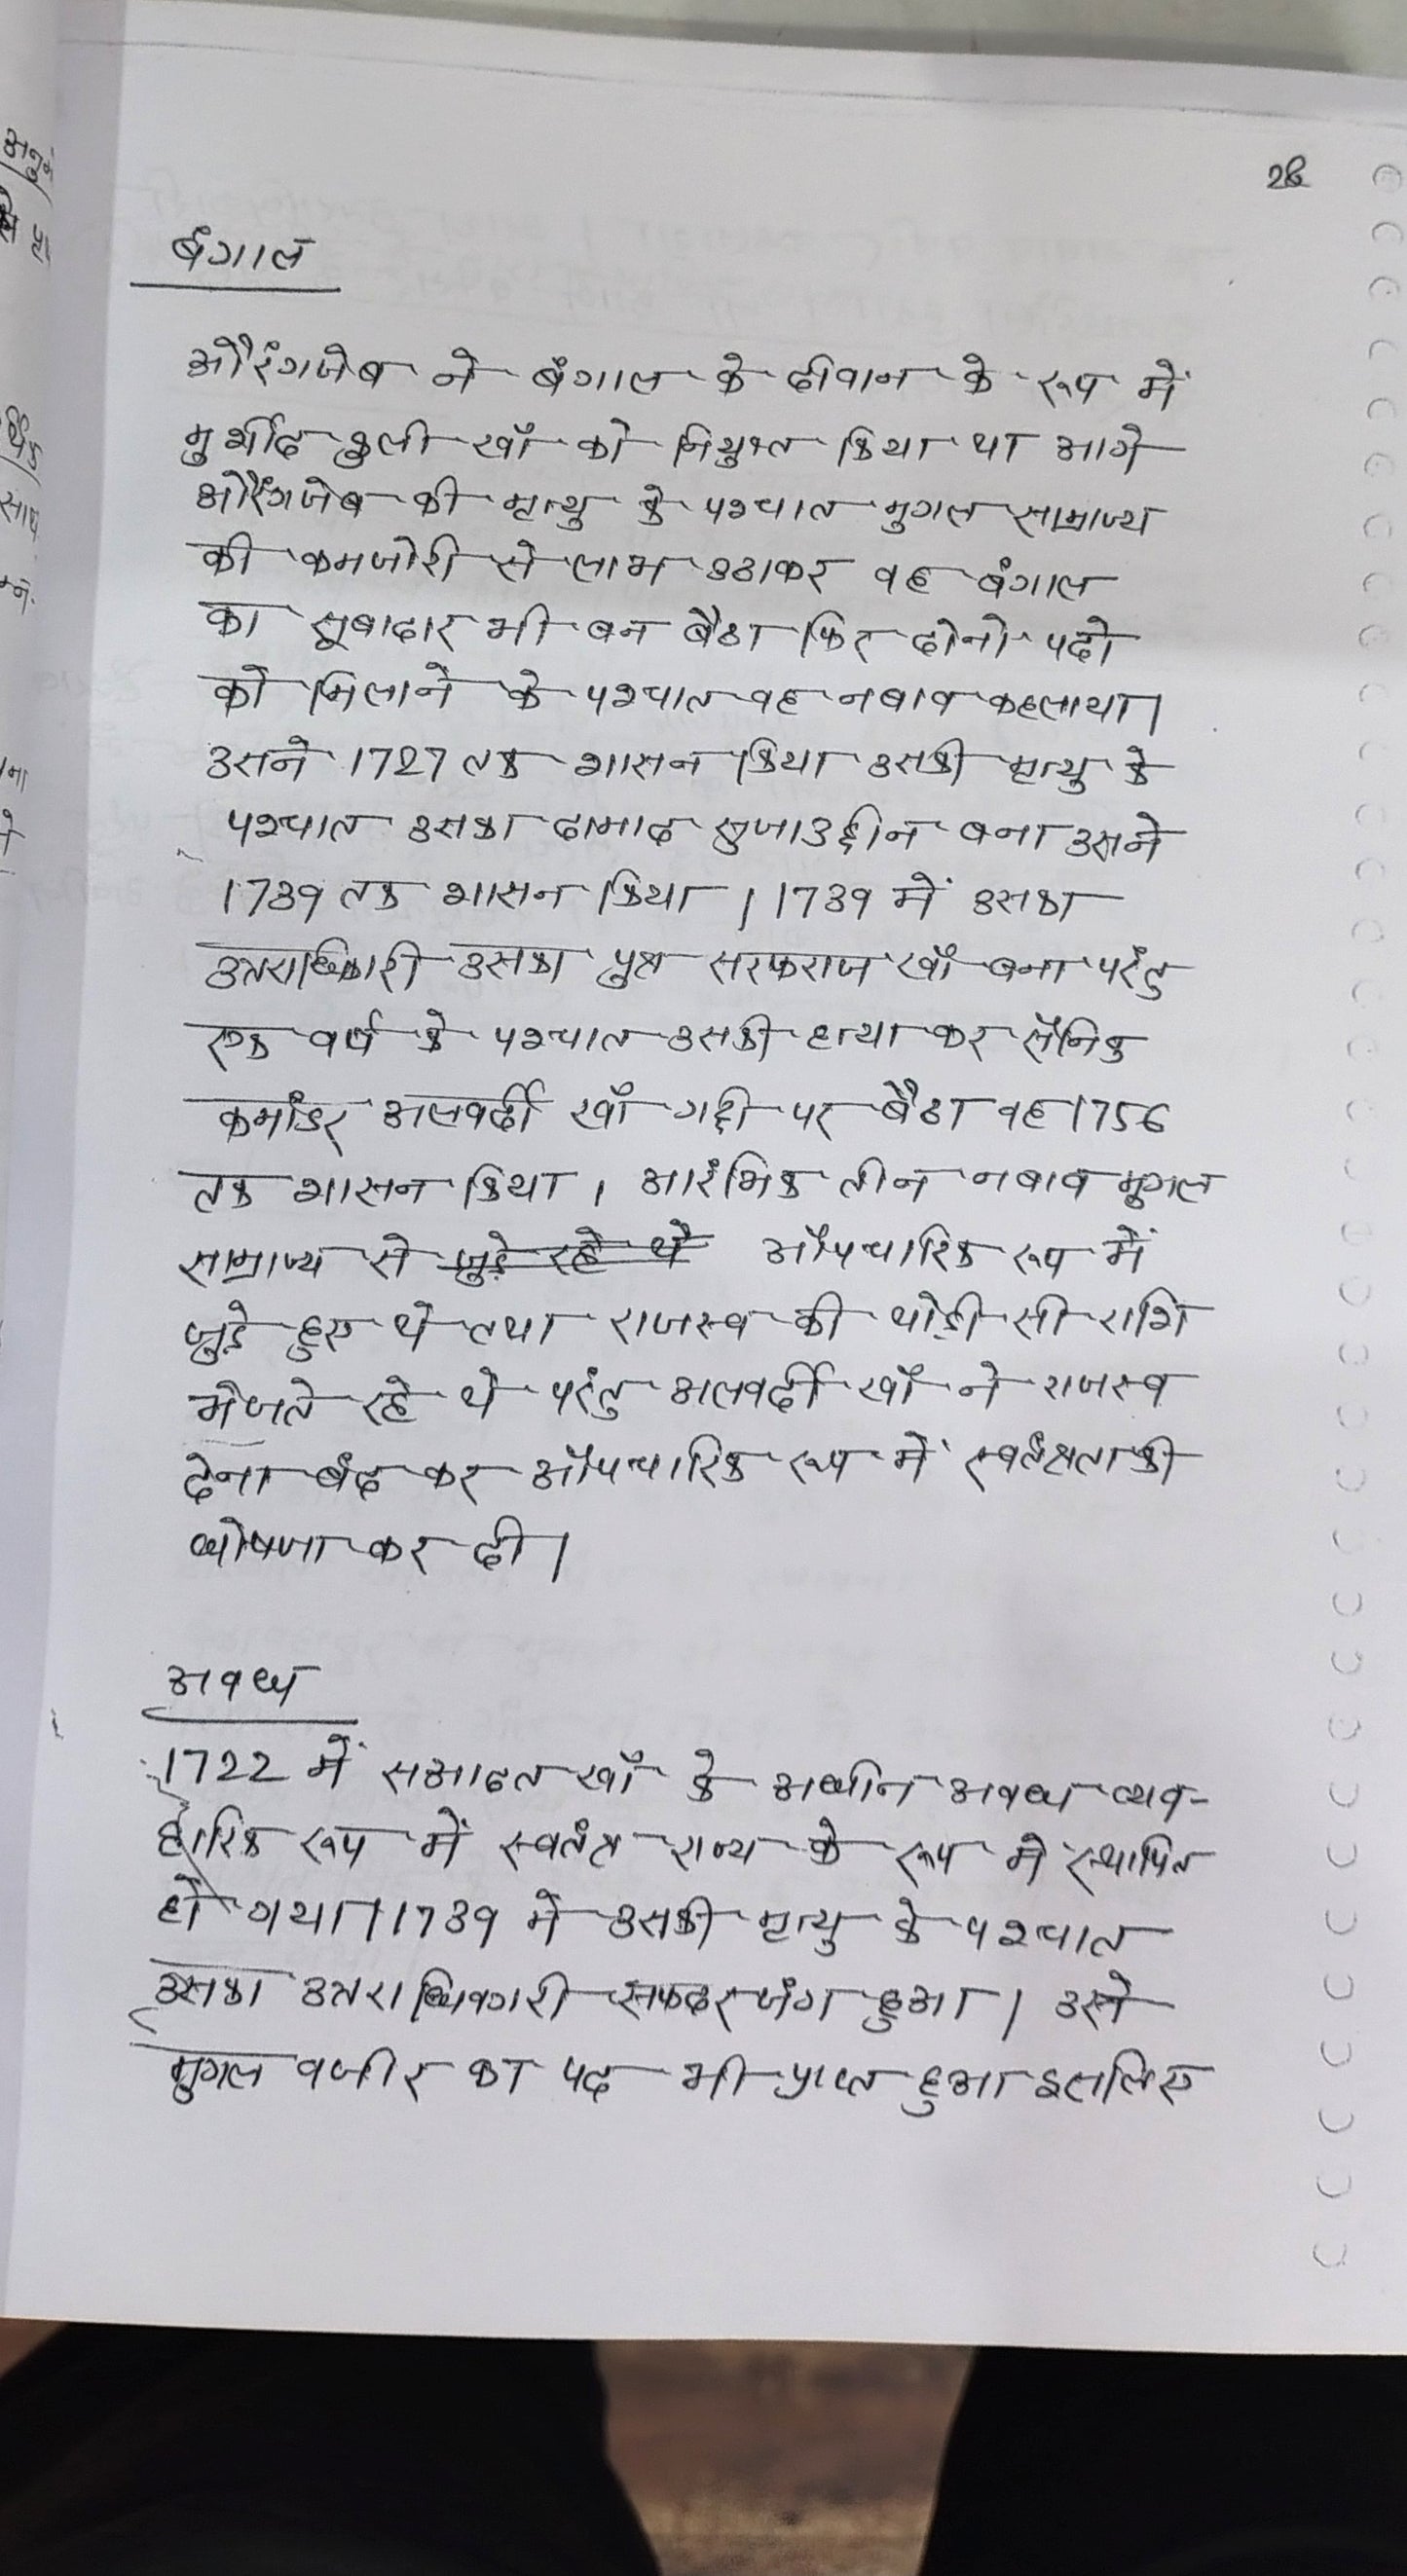 28
बंगाल
औरंगजेब ने बंगाल के दीवान के रूप में
मुर्शीद कुली खाँ को नियुक्त किया था आगे
औरंगजेब की मृत्यु के पश्चात मुगल साम्राज्य
की कमजोरी से लाभ उठाकर वह बंगाल
का सूबादार भी बन बैठा फिर दोनो पदो
को मिलाने के पश्चात वह नबाव कहलाया।
उसने 1727 तक शासन किया उसकी मृत्यु के
पश्चात उसका दामाद सुजाउद्दीन बना उसने
1739 तक शासन किया। 1739 में उसका
उत्तराधिकारी उसका पुत्र सरफराज खाँ बना परंतु
एक वर्ष के पश्चात उसकी हत्या कर सैनिक
कमांडर अलवर्दी खाँ गद्दी पर बैठा वह 1756
तक शासन किया। आरंभिक तीन नबाव मुगल
साम्राज्य से जुड़े रहे थे औपचारिक रूप में
जुड़े हुए थे तथा राजस्व की थोड़ी सी राशि
भेजते रहे थे परंतु अलवर्दी खाँ ने राजस्व
देना बंद कर औपचारिक रूप में स्वतंत्रता की
घोषणा कर दी।
अवध
1722 में सआदत खाँ के अधीन अवध व्यव-
हारिक रूप में स्वतंत्र राज्य के रूप मे स्थापित
हो गया। 1739 मे उसकी मृत्यु के पश्चात
उसका उत्तराधिकारी सफदरजंग हुआ। उसे
मुगल वजीर का पद भी प्राप्त हुआ इसलिए